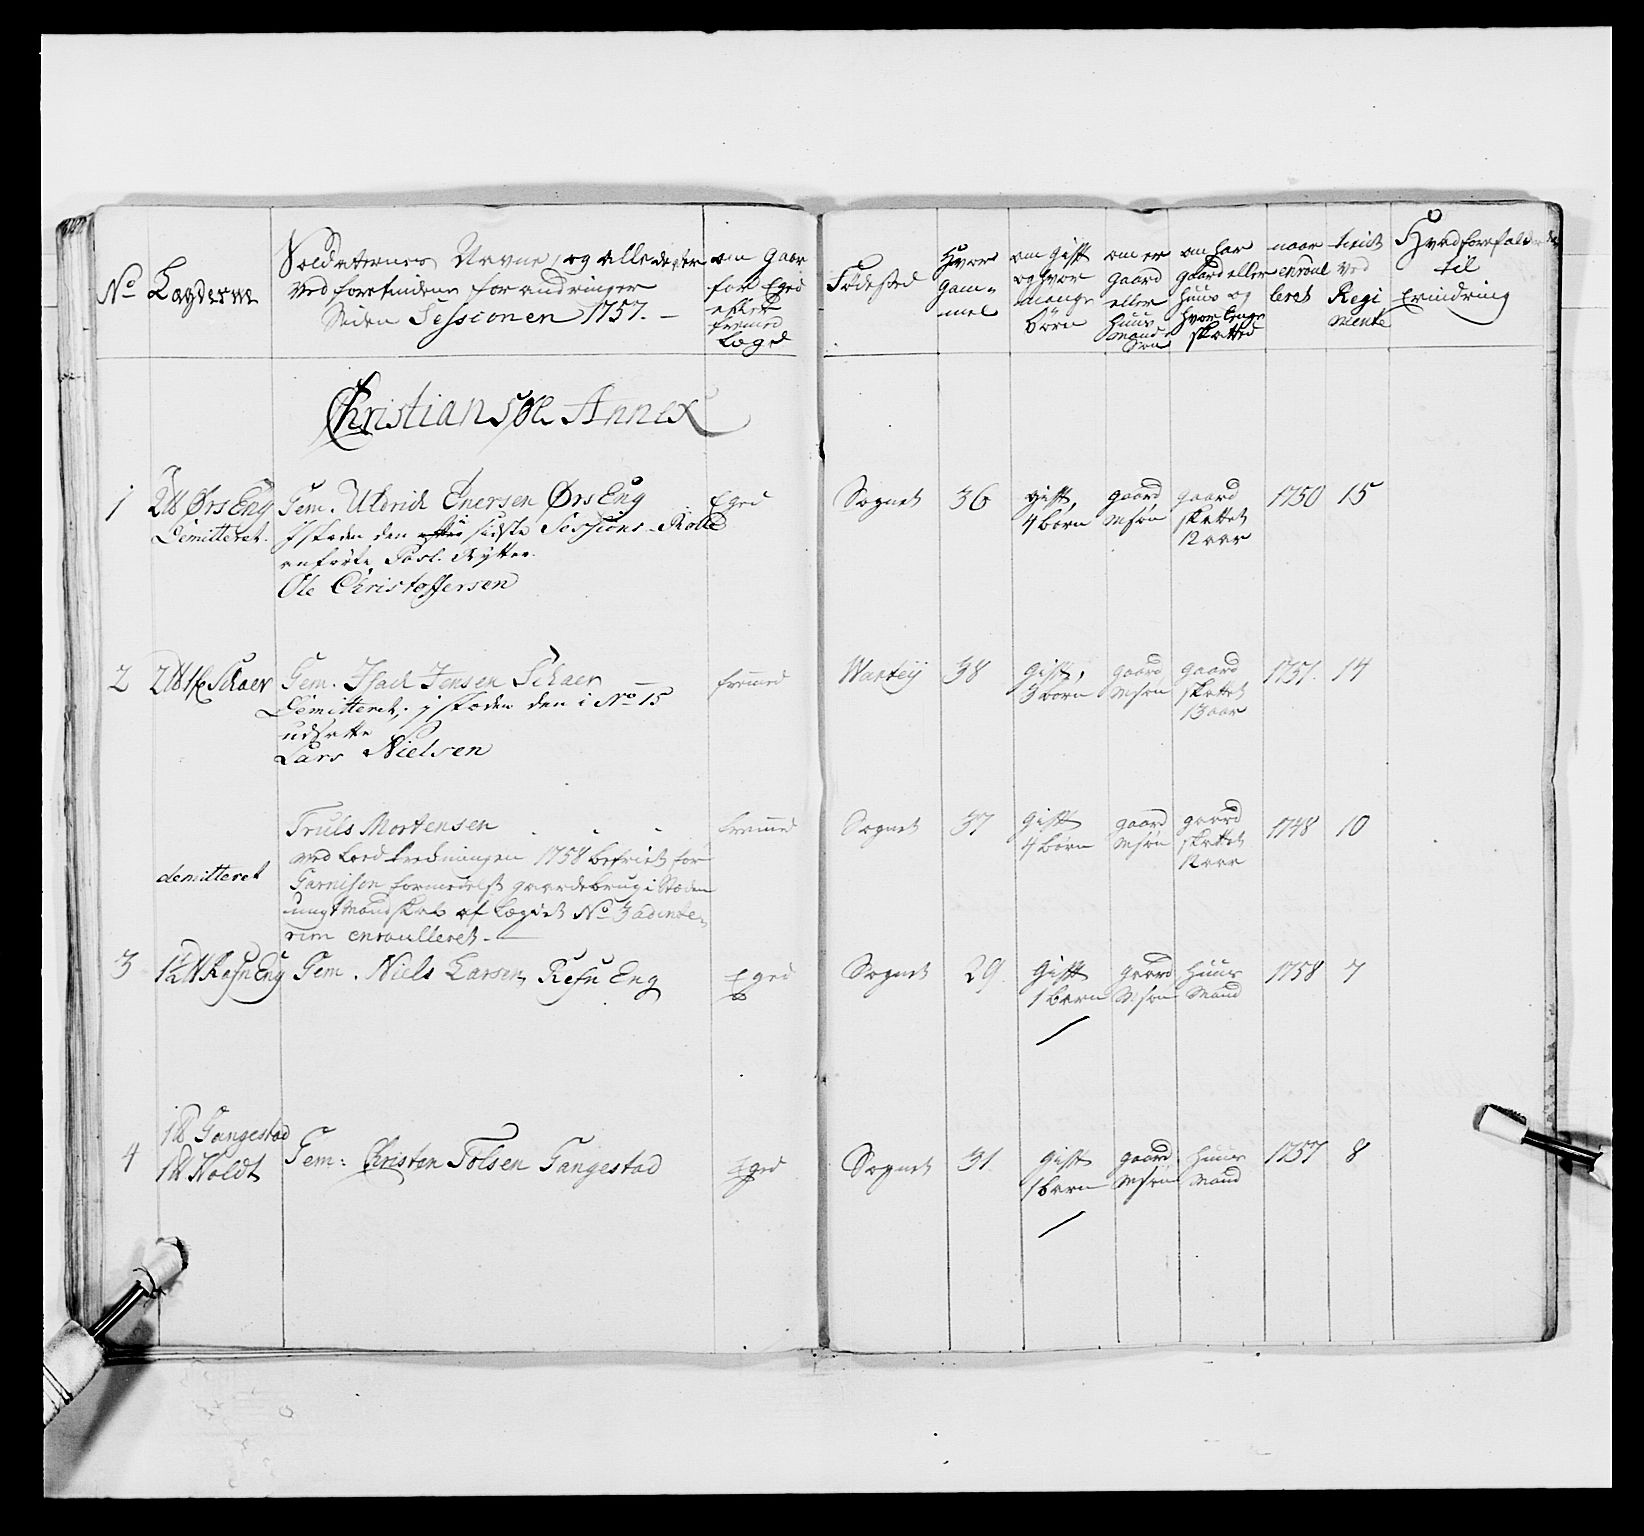 No
Lægderne
Soldaternes Navne, og alle deris
ved forefindene forandringer
Siden Sessionen 1757. –
om gaar
for Eged
eller
fremed
Lægd
Fødested
Hvor
gam=
mel
om gift
og hvor
mange
børn
om er
gaard
eller
Huus
Mands
Søn
om har
gaard eller
huus og
hvor lenge
skatted
naar
enroul
leret
tient
ved
Regi
mente
Hvad forefalder
til
Erindring
Christiansöe Annex
1
Ørs Eng
Demitteret.
Gem. Uldrich Enersen Ørs Eng
J stæden den sidste Sessions-Rolle
anførte Rytter
Ole Christoffersen
Eged
Sognet
36
gift
4 børn
gaard
Msøn
gaard
skattet
12 aar
1750
15
2
Schaer
Gem. Jsach Jensen Schaer –
Demitteret, i stæden den i No 15
udsatte
Lars Nielsen
fremed
38
gift,
3 børn
gaard
Msøn
gaard
skattet
13 aar
1751.
14
demitteret
Truls Mortensen
ved 1758 befriet for
Garnison formedelst gaardebrug i Stæden
ungt Mandskab af Lægdet No 3 adinte=
rim enroulleret. –
fremed
Sognet
37
gift
4 børn
gaard
Msøn
gaard
skattet
12 aar
1748
10
3
Refn Eng
Gem. Niels Larsen, Refn Eng
Eged
Sognet
29
gift
1 barn
gaard
Msøn
Huus
Mand
1758
7
4
Gangestad
Holdt
Gem: Christen Tolsen Gangestad
Eged
Sognet
31
gift
1 barn
gaard
Msøn
huus
Mand
1757
8